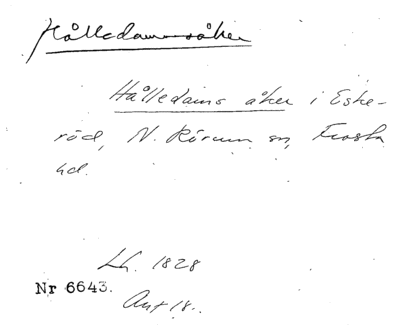 Hålledamsåker
Hålledams åker i Eske-
röd, N. Rörum sn, Frosta
hd.
Lh. 1828
Nr 6643.
Ant 18..